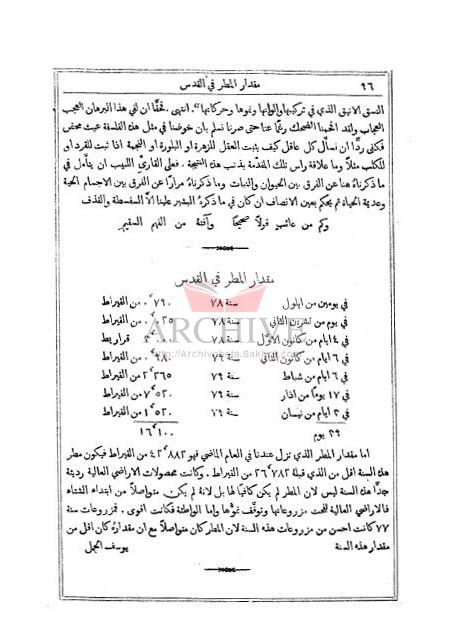 ٩٦ مقدار المطر في القدس
النسق الانيق الذي في تركيبها والوانها ونموها وحركاتها". انتهى. فحقًّا ان في هذا البرهان العجب
العجاب ولقد اضحك رغمًا عنا حتى صرنا نسلم بان خوضنا في مثل هذه الفلسفة عيث محض
فكفى ردًّا ان نسأل كل عاقل كيف يثبت العقل للزهرة او البلورة او النجمة اذا ثبت للقرد او
للكلب مثلًا وما علاقة راس تلك المقدّمة بذنب هذه النتيجة. فعلى القارئ اللبيب ان يتأمل في
ما ذكرناهُ هنا عن الفرق بين الحيوان والنبات وما ذكرناهُ مرارًا عن الفرق بين الاجسام الحية
وعديمة الحياة ثم يحكم بعين الانصاف ان كان في ما ذكرهُ البشير علينا الّا السفسطة والقذف
وكم من عائبٍ قولًا صحيحًا وآفتهُ من الفهم السقيمِ
مقدار المطر في القدس
في يومين من ايلول سنة ٧٨ ٧٩٠ من القيراط
في يوم من تشرين الثاني ٧٨ من القيراط
في ٤ ايام من كانون الاوّل سنة ٧٨ قراريط
في ٦ ايام من كانون الثاني سنة ٧٩ من القيراط
في ٦ ايام من شباط سنة ٧٩ ٢٬٣٦٥ من القيراط
في ١٧ يومًا من اذار سنة ٧٩ ٧٬٥٣٠ من القيراط
في ٣ ايام من نيسان سنة ٧٩ ١٬٥٣٠ من القيراط
٣٩ يوم ١٦٬١٠٠
اما مقدار المطر الذي نزل عندنا في العام الماضي فهو ٤٢٬٨٨٣ من القيراط فيكون مطر
هذه السنة اقل من الذي قبلهُ ٢٦٬٧٨٣ من القيراط. وكانت محصولات الاراضي العالية رديئة
جدًّا هذه السنة ليس لان المطر لم يكن كافيًا لها بل لانهُ لم يكن متواصلًا من ابتداء الشتاء
فالاراضي العالية مزروعاتها وتوقّف نموّها واما الواطئة فكانت اقوى. فمزروعات سنة
٧٧ كانت احسن من مزروعات هذه السنة لان المطر كان متواصلًا مع ان مقدارهُ كان اقل من
مقدار هذه السنة يوسف الجمل
ARCHIVE